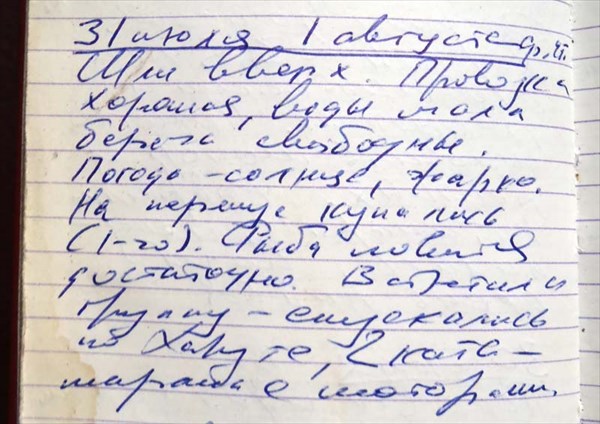 31 июля 1 августа ср, чт.
Шли вверх. Проводка
хорошая, воды мало
берега свободные.
Погода - солнце, жарко.
На перекусе купались
(1-го). Рыба ловится
достаточно. Встретили
группу - спускались
по Харуте, 2 ката-
марана с моторами.